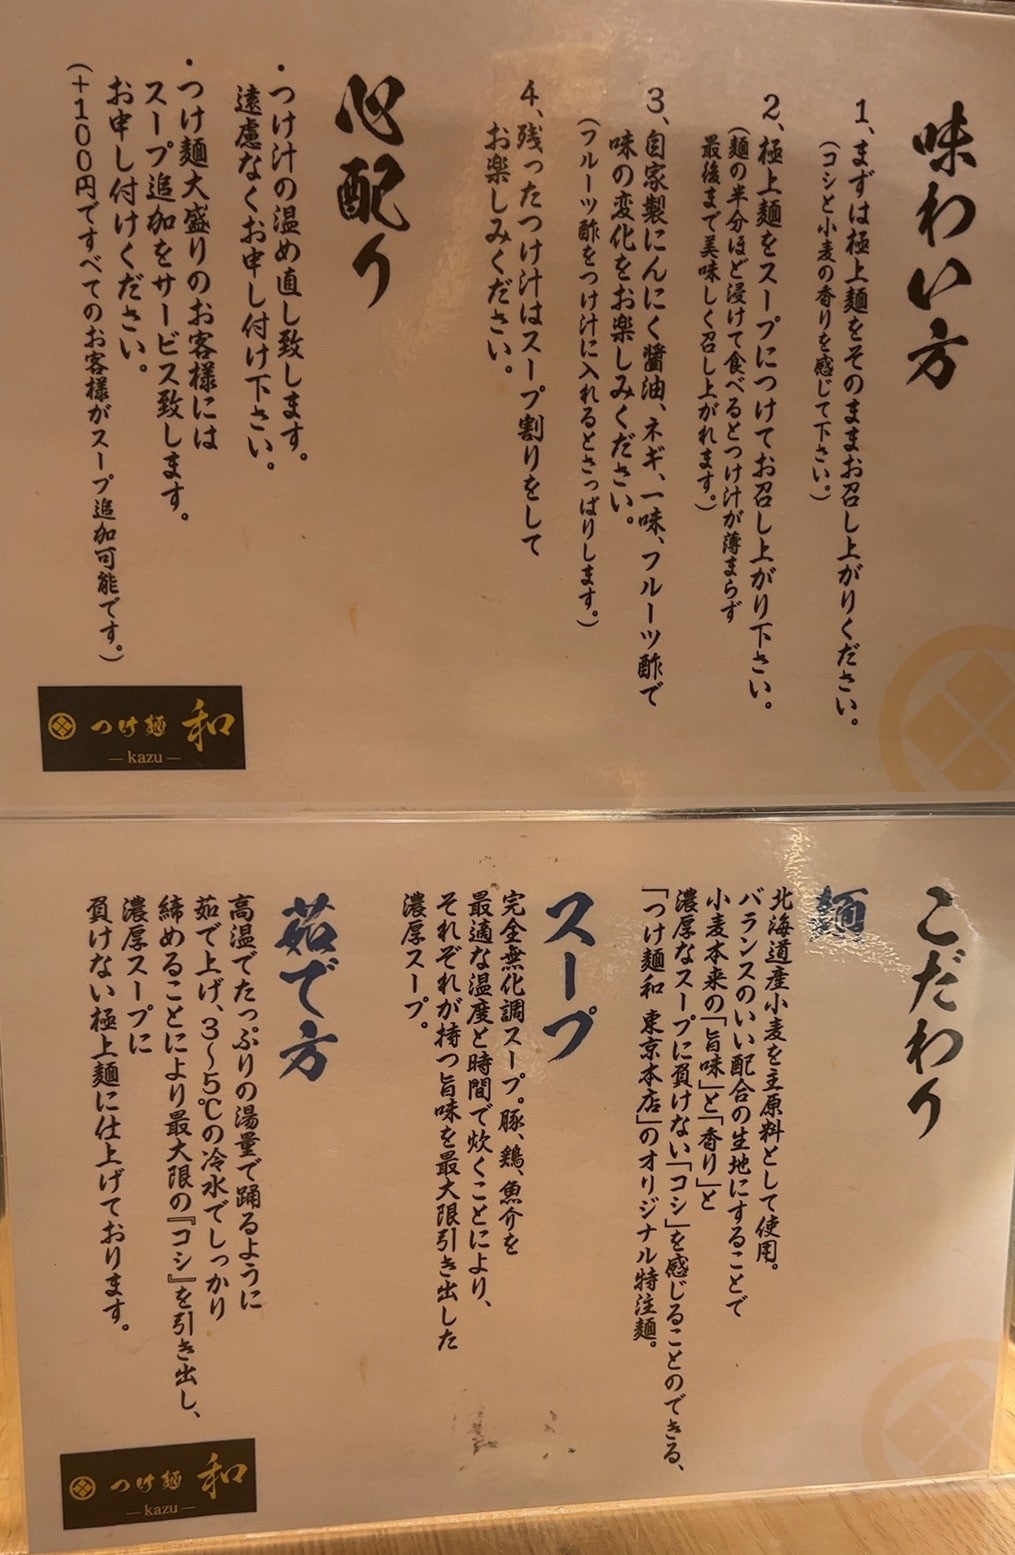 味わい方
1、まずは極上麺をそのままお召し上がりください。
(コシと小麦の香りを感じて下さい。)
2、極上麺をスープにつけてお召し上がり下さい。
(麺の半分ほど浸けて食べるとつけ汁が薄まらず
最後まで美味しく召し上がれます。)
3、自家製にんにく醤油、ネギ、一味、フルーツ酢で
味の変化をお楽しみください。
(フルーツ酢をつけ汁に入れるとさっぱりします。)
4、残ったつけ汁はスープ割りをして
お楽しみください。
心配り
・つけ汁の温め直し致します。
遠慮なくお申し付け下さい。
・つけ麺大盛りのお客様には
スープ追加をサービス致します。
お申し付けください。
(+100円ですべてのお客様がスープ追加可能です。)
つけ麺 和
—kazu—
こだわり
麺
北海道産小麦を主原料として使用。
バランスのいい配合の生地にすることで
小麦本来の「旨味」と「香り」と
濃厚なスープに負けない「コシ」を感じることのできる、
「つけ麺和 東京本店」のオリジナル特注麺。
スープ
完全無化調スープ。豚、鶏、魚介を
最適な温度と時間で炊くことにより、
それぞれが持つ旨味を最大限引き出した
濃厚スープ。
茹で方
高温でたっぷりの湯量で踊るように
茹で上げ、3〜5℃の冷水でしっかり
締めることにより最大限の『コシ』を引き出し、
濃厚スープに
負けない極上麺に仕上げております。
つけ麺 和
—kazu—